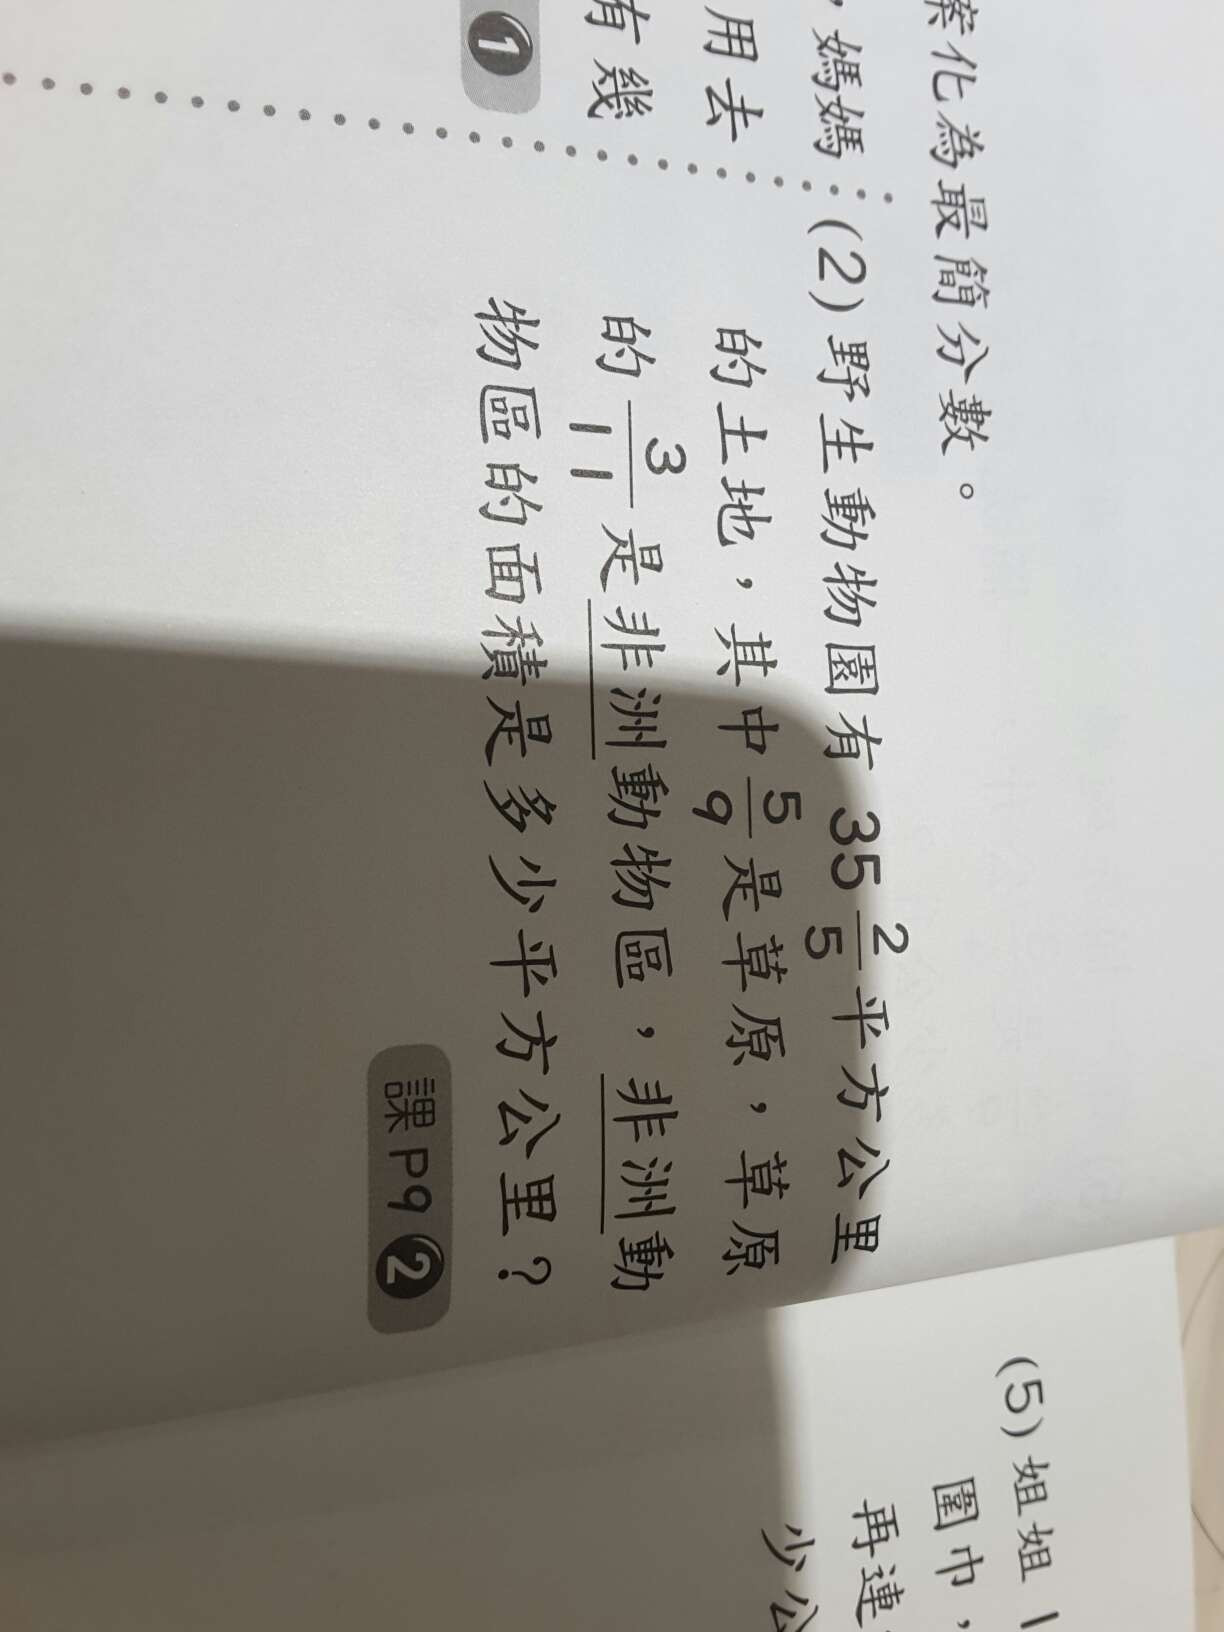 案化為最簡分數。
，媽媽
用去
有幾
1
(2) 野生動物園有 35 2/5 平方公里
的土地，其中 5/9 是草原，草原
的 3/11 是非洲動物區，非洲動
物區的面積是多少平方公里？
課P9 2
(5) 姐姐 1
圍巾，
再連
少公